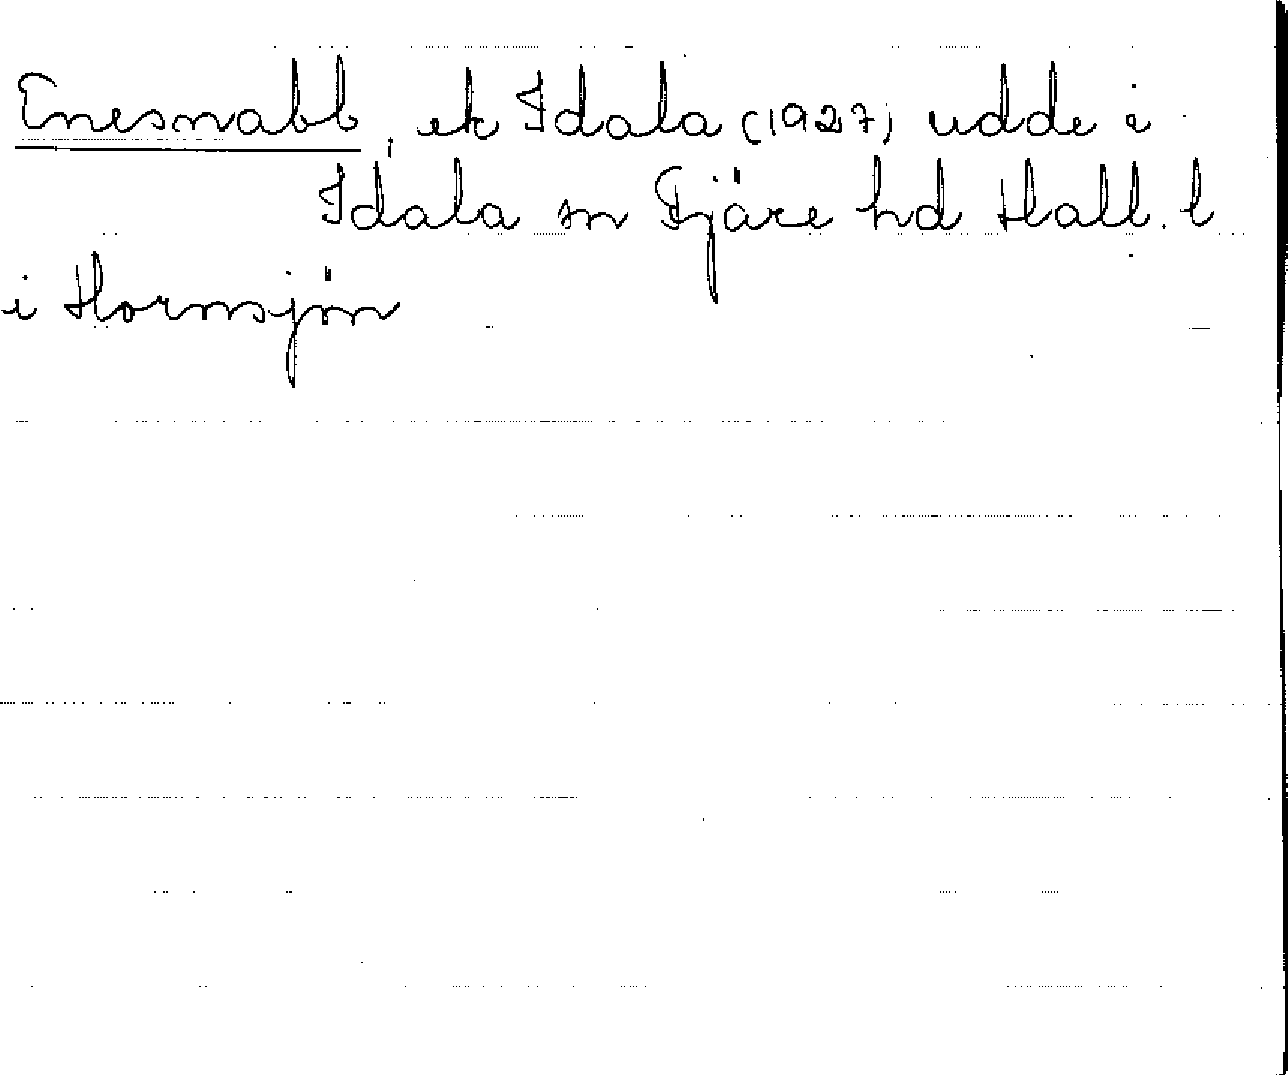 Enesnabb, ek Idala (1927) udde i
Idala sn Fjäre hd Hall. l
i Hornsjön